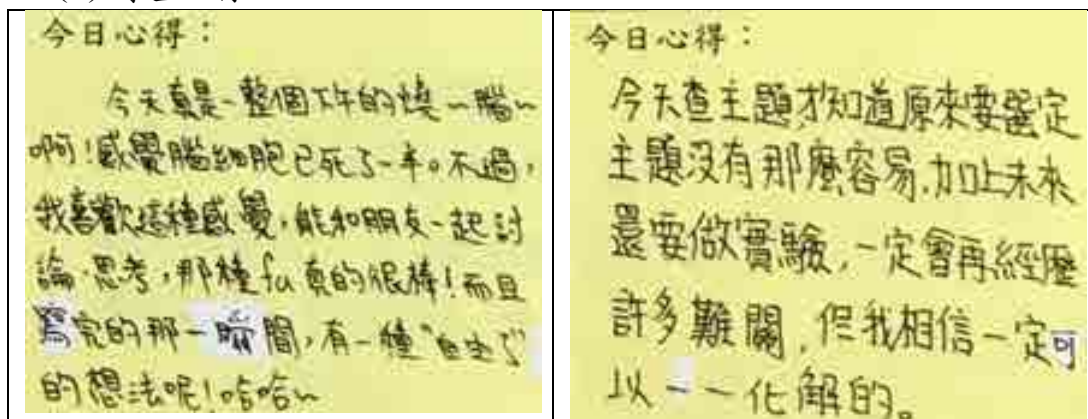 今日心得：
今天真是一整個下午的燒~腦~
啊!感覺腦細胞已死了一半。不過,
我喜歡這種感覺,能和朋友一起討
論、思考,那種fu真的很棒!而且
寫完的那一瞬間,有一種
的想法呢!哈哈~
今日心得：
今天查主題,才知道原來要選定
主題沒有那麼容易,加上未來
還要做實驗,一定會再經歷
許多難關,但我相信一定可
以一一化解的。